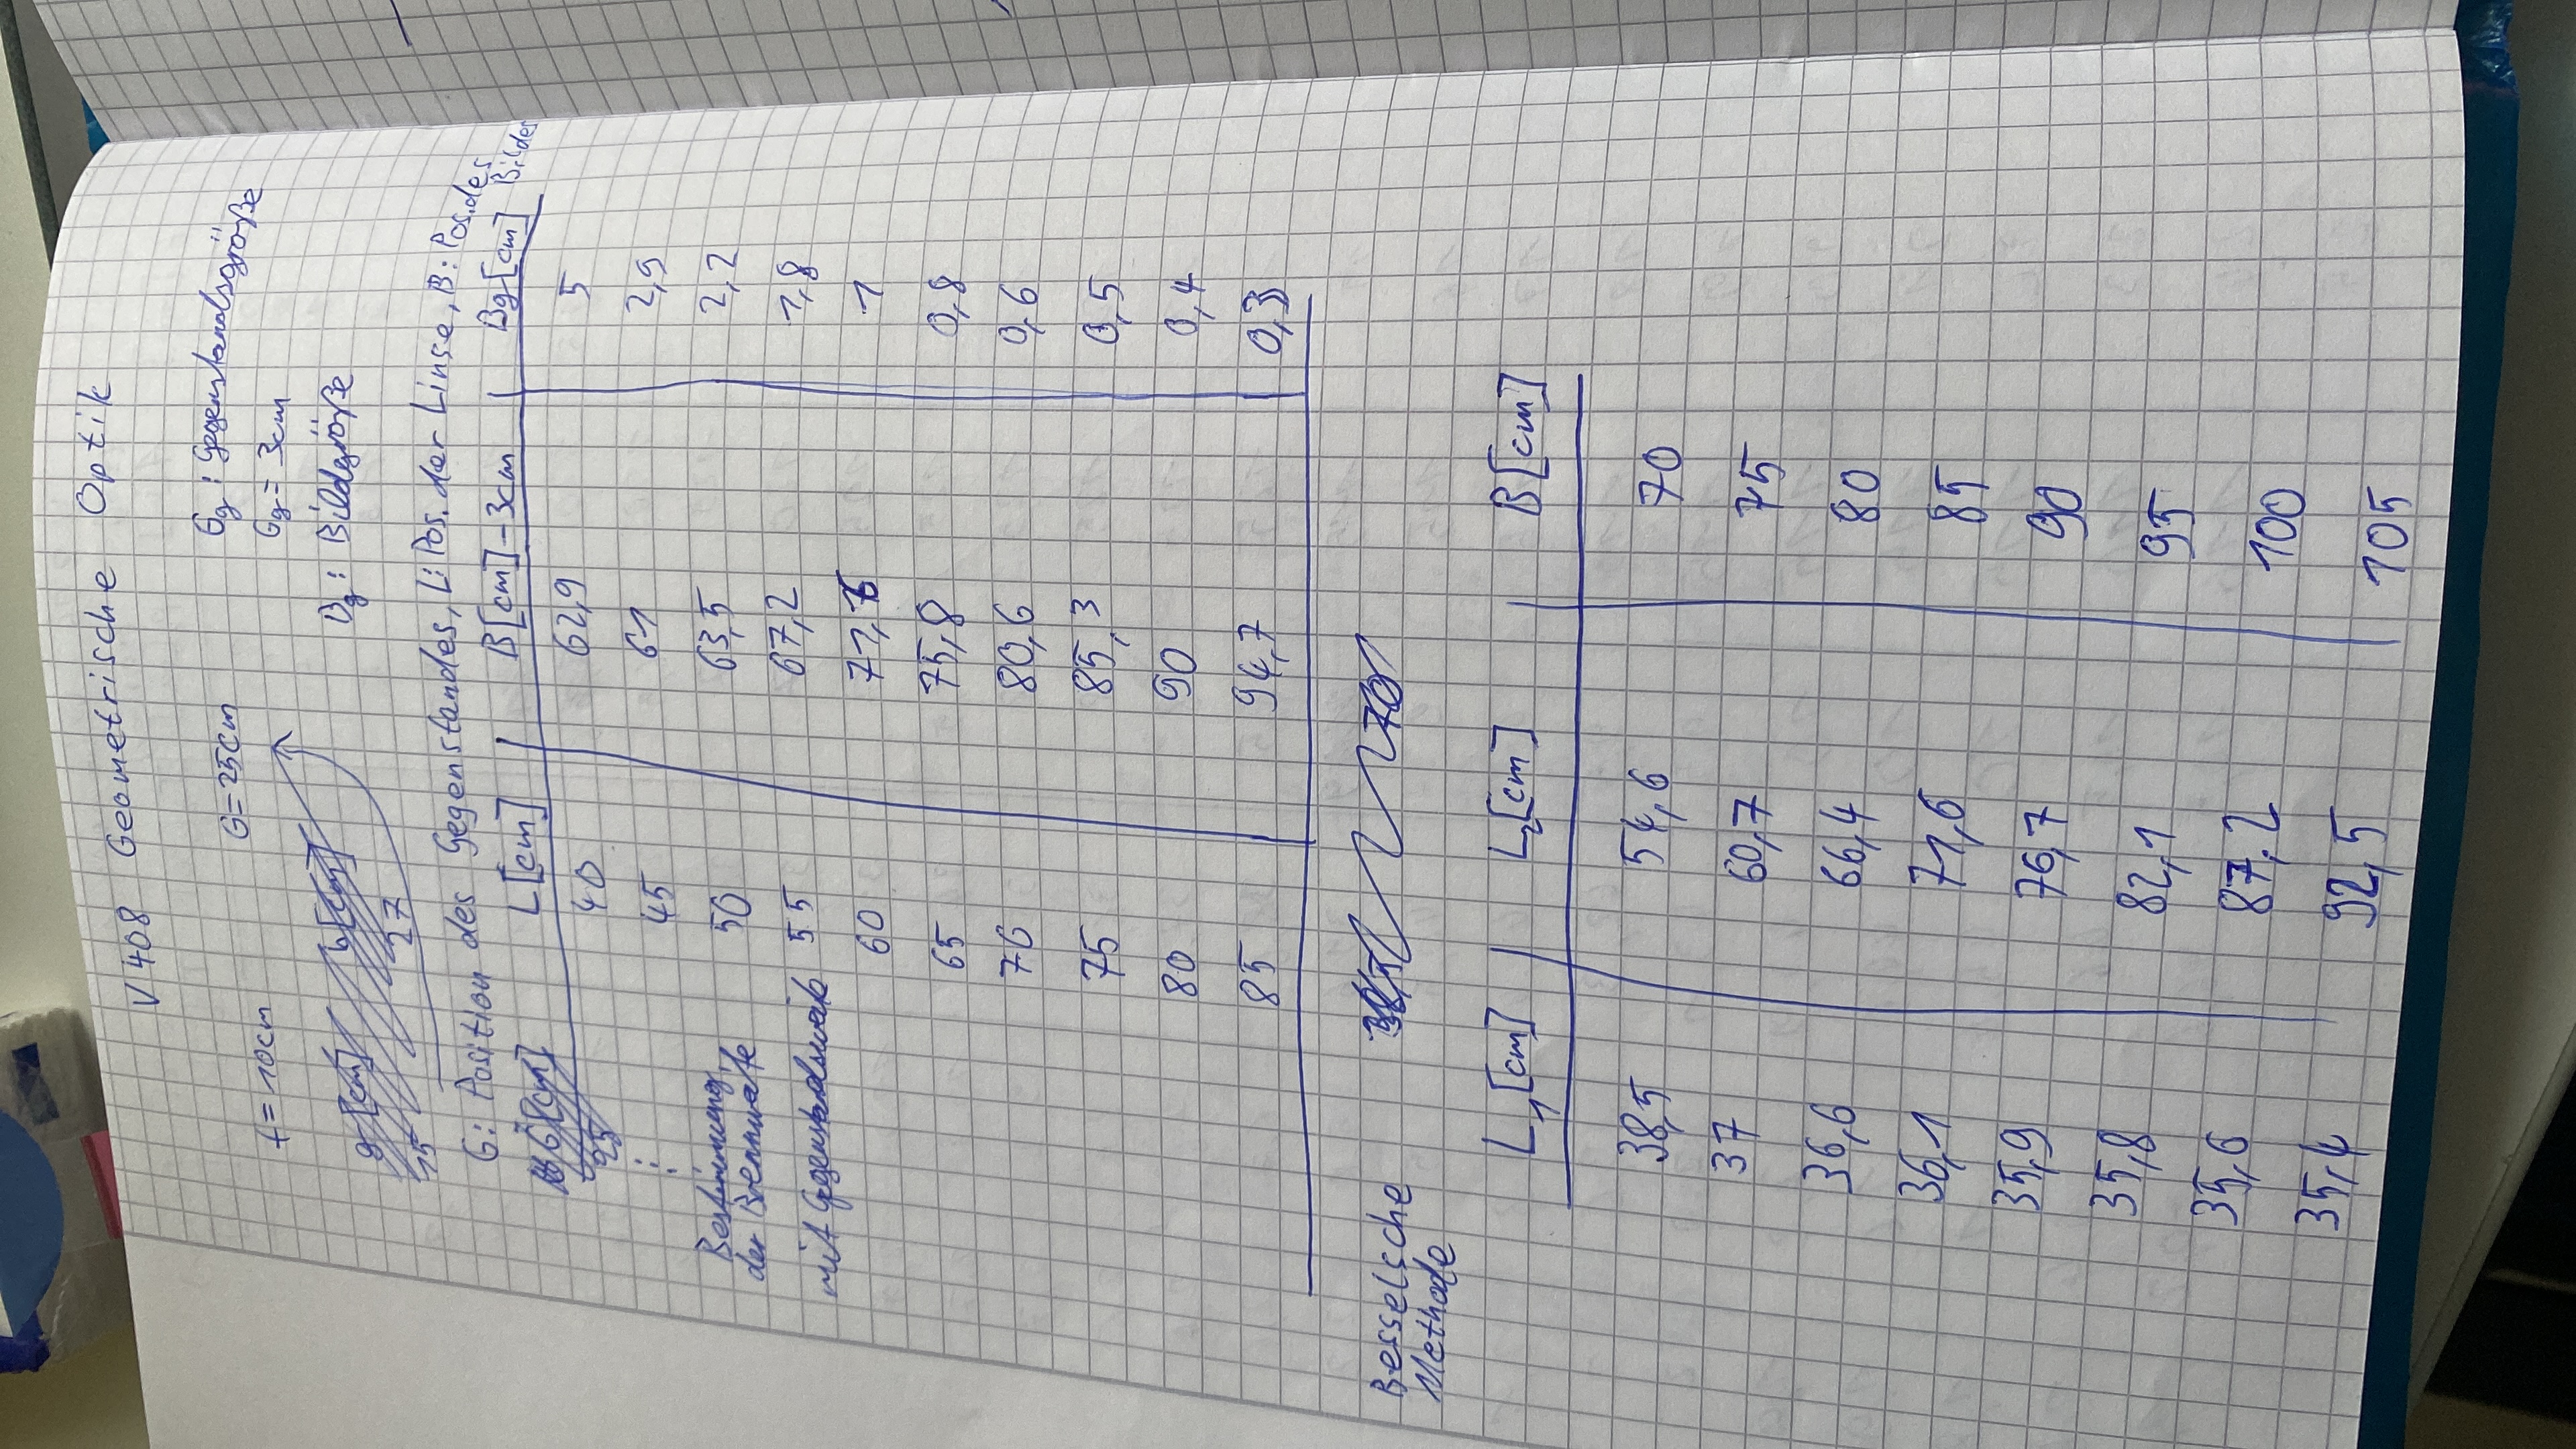 V408 Geometrische Optik
f = 10cm G = 25cm Gg : Gegenstandsgröße
Gg = 3cm
Bg : Bildgröße
g [cm] b [cm]
15 27
G: Position des Gegenstandes, L: Pos. der Linse, B: Pos. des Bildes
G [cm] L [cm] B [cm] - 3cm Bg [cm]
25 40 62,9 5
45 61 2,9
Bestimmung der Brennweite mit Gegenstandsweite
50 63,5 2,2
55 67,2 1,8
60 71,6 1
65 75,8 0,8
70 80,6 0,6
75 85,3 0,5
80 90 0,4
85 94,7 0,3
Besselsche 70
Methode
L1 [cm] L2 [cm] B [cm]
38,5 54,6 70
37 60,7 75
36,6 66,4 80
36,1 71,6 85
35,9 76,7 90
35,8 82,1 95
35,6 87,2 100
35,4 92,5 105